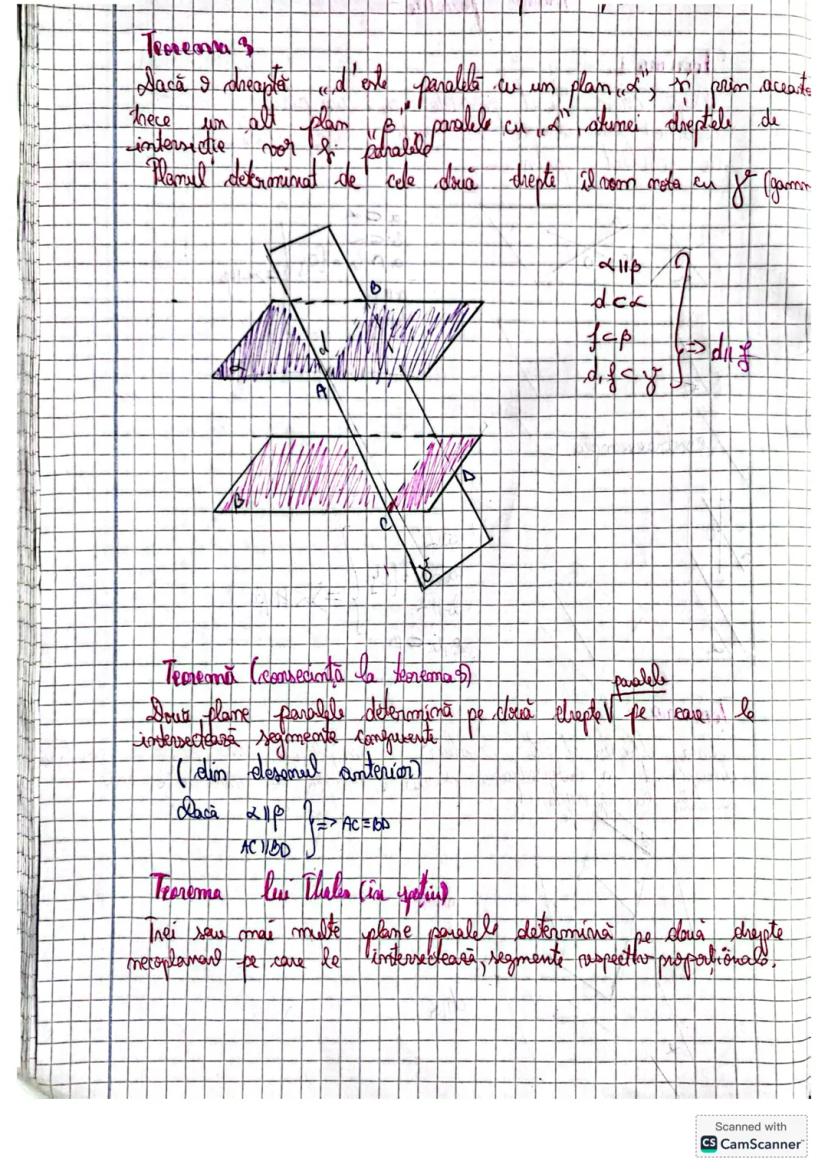 Teorema 3
Dacă o dreaptă „d" este paralelă cu un plan „α", și prin aceasta
trece un alt plan „β" paralele cu „α", atunci dreptele de
intersecție vor fi paralele
Planul determinat de cele două drepte îl vom nota cu γ (gamm
B
d
α
A
α||β
d⊂α
f⊂β
d, f⊂γ
=> d||f
β
D
C
γ
Teoremă (consecință la teorema 3)
paralele
Două plane paralele determină pe două drepte√ pe care le
intersectează segmente congruente
(din desenul anterior)
Dacă α||β
AC||BD
=> AC≡BD
Teorema lui Thales (în spațiu)
Trei sau mai multe plane paralele determină pe două drepte
necoplanare pe care le intersectează, segmente respectiv proporționale.
Scanned with
CS CamScanner